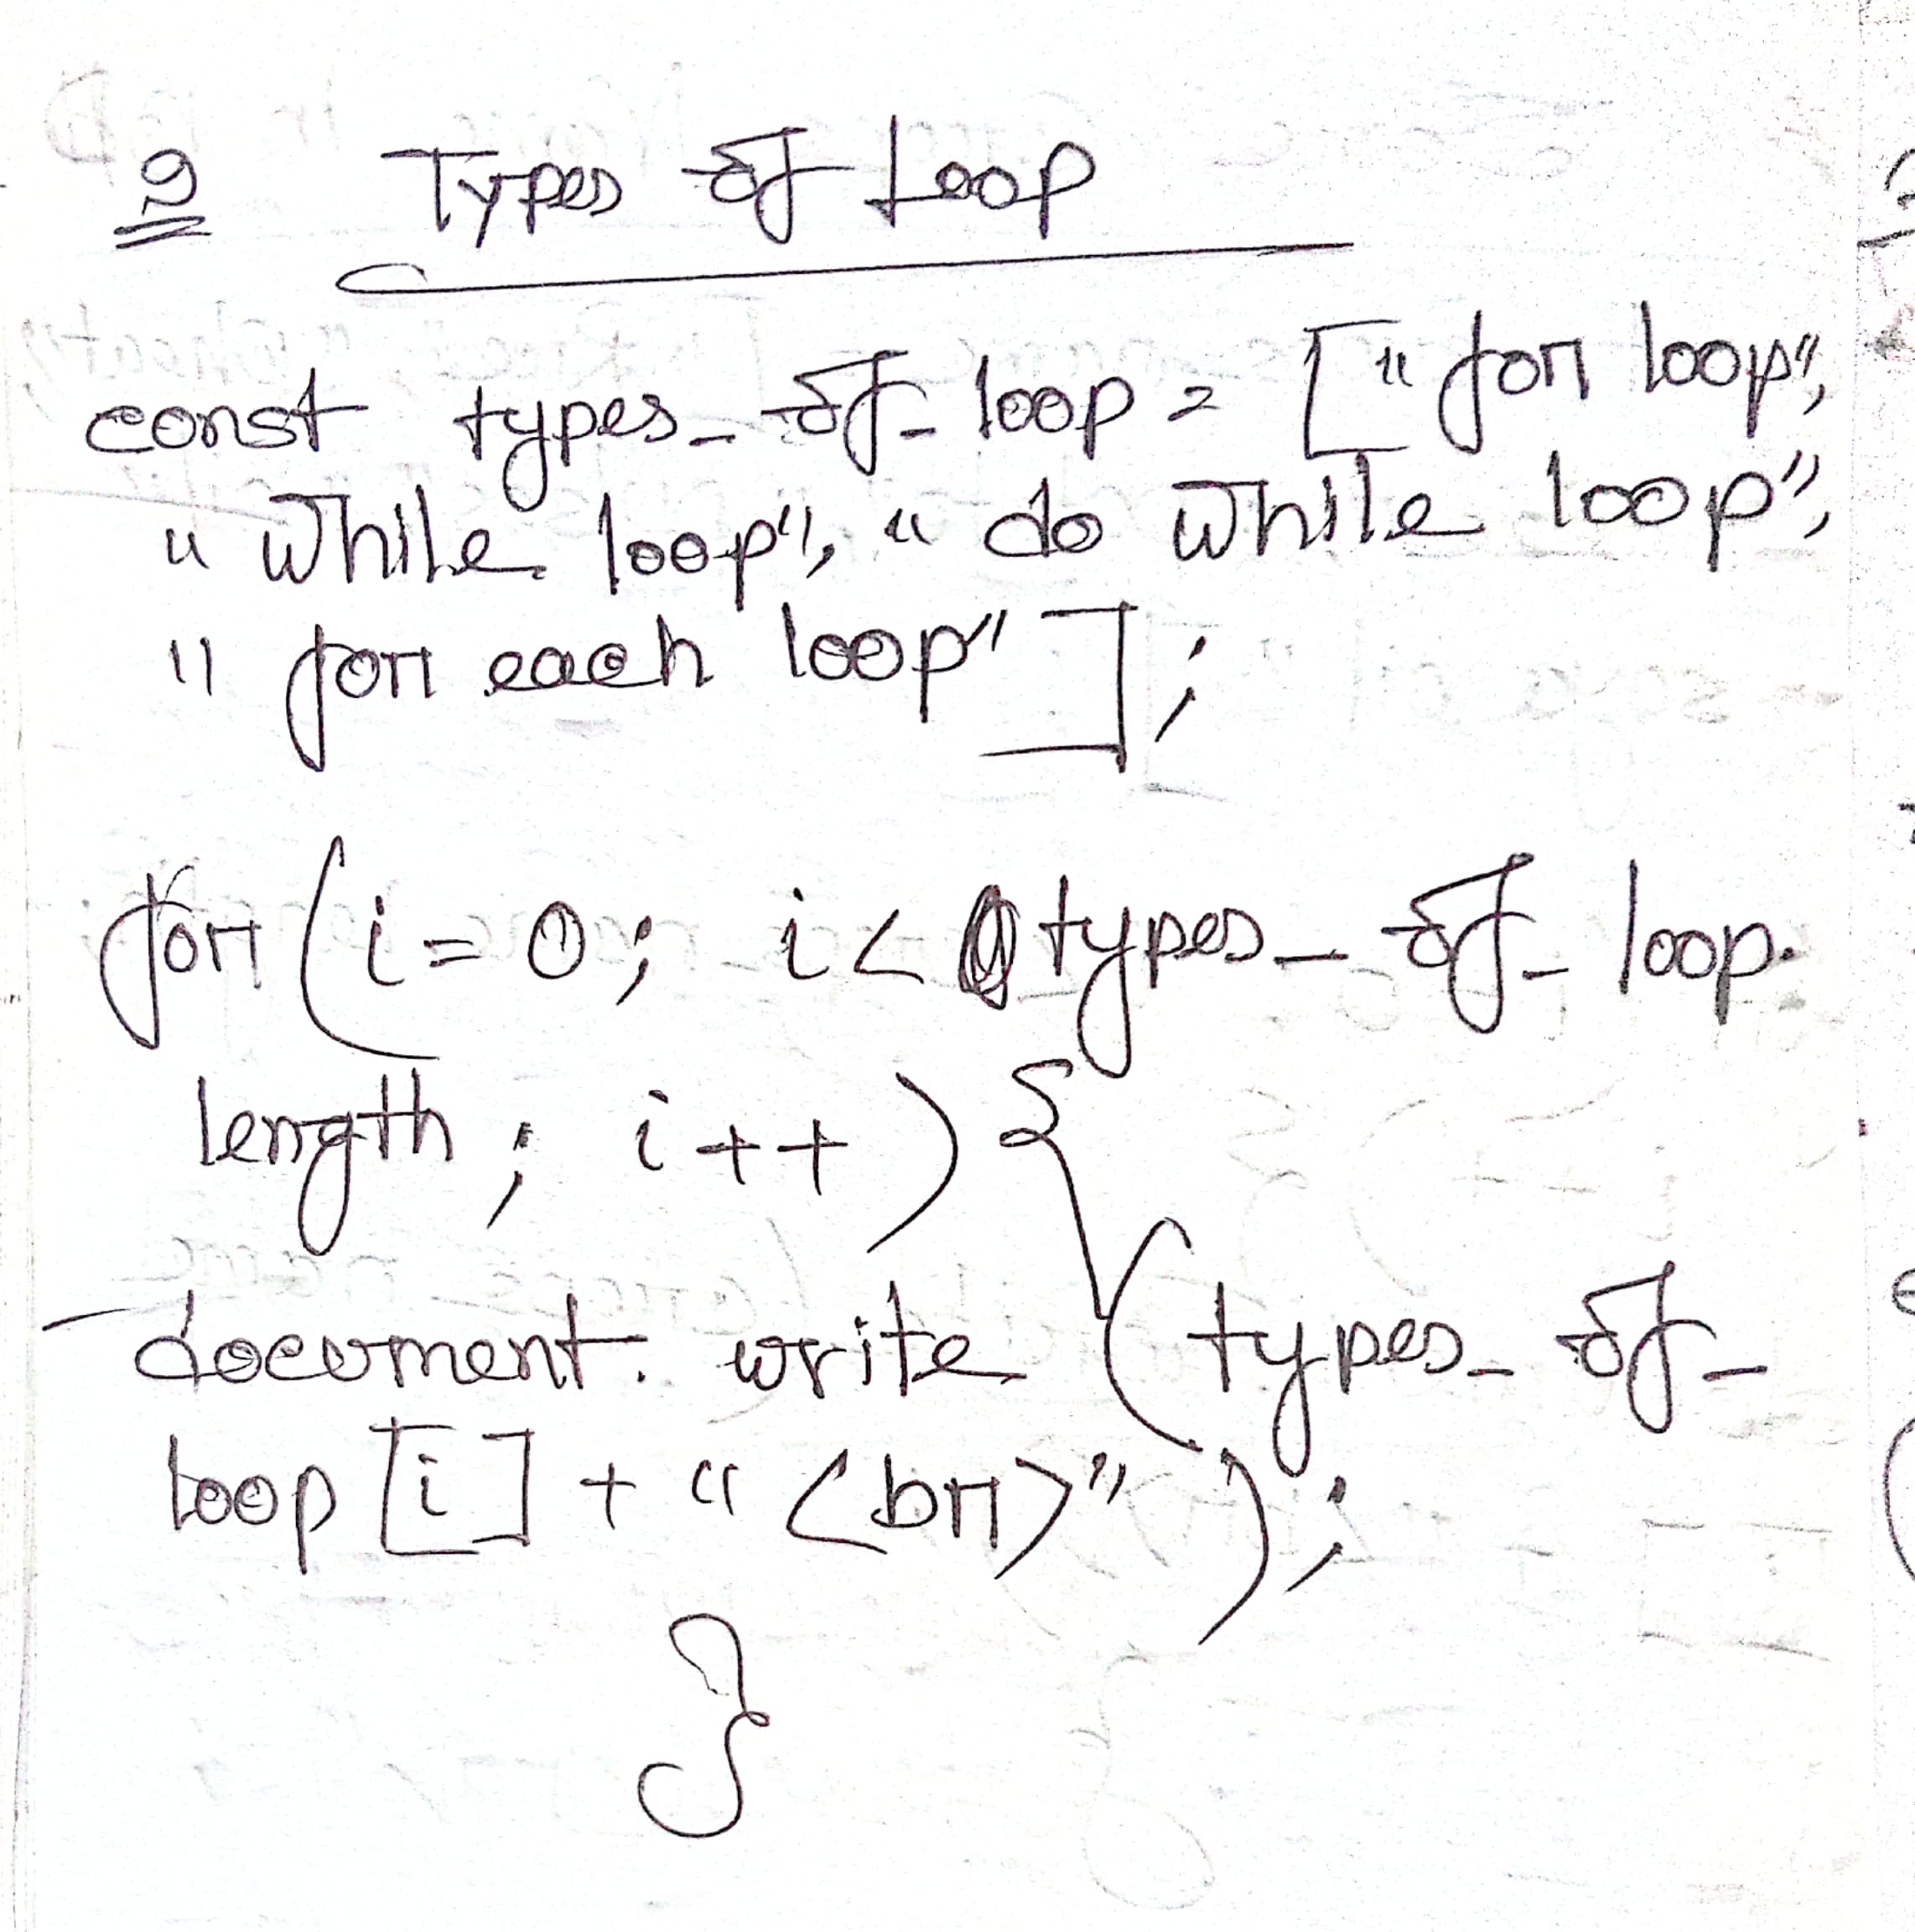 2 Types of Loop
const types_of_loop = ["for loop",
"while loop", "do while loop",
"for each loop"];
for (i = 0; i < types_of_loop.
length; i++) {
document.write (types_of_
loop [i] + "<br>");
}